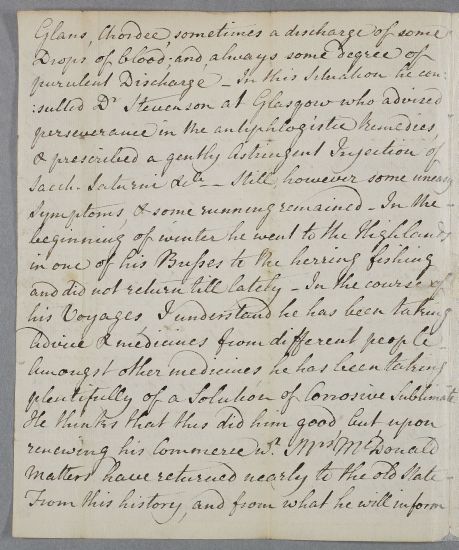 Glans, Chordee, sometimes a discharge of some
Drops of blood, and always some degree of
purulent Discharge – In this Situation he con:
:sulted Dr Stevenson at Glasgow who advised
perseverance in the antiphlogistic Remedies,
& prescribed a gently Astringent Injection of
Sacch. Saturni &c. – Still, however some uneasy
Symptoms, & some running remained – In the
beginning of winter he went to the Highlands
in one of his Busses to the herring fishing
and did not return till lately – In the course of
his Voyages, I understand he has been taking
advice & medicines from different people
Amongst other medicines he has been taking
plentifully of a Solution of Corrosive Sublimate
He thinks that this did him good but upon
renewing his Commerce wt. Mrs McDonald
Matters have returned nearly to the old State –
From this history, and from what he will inform